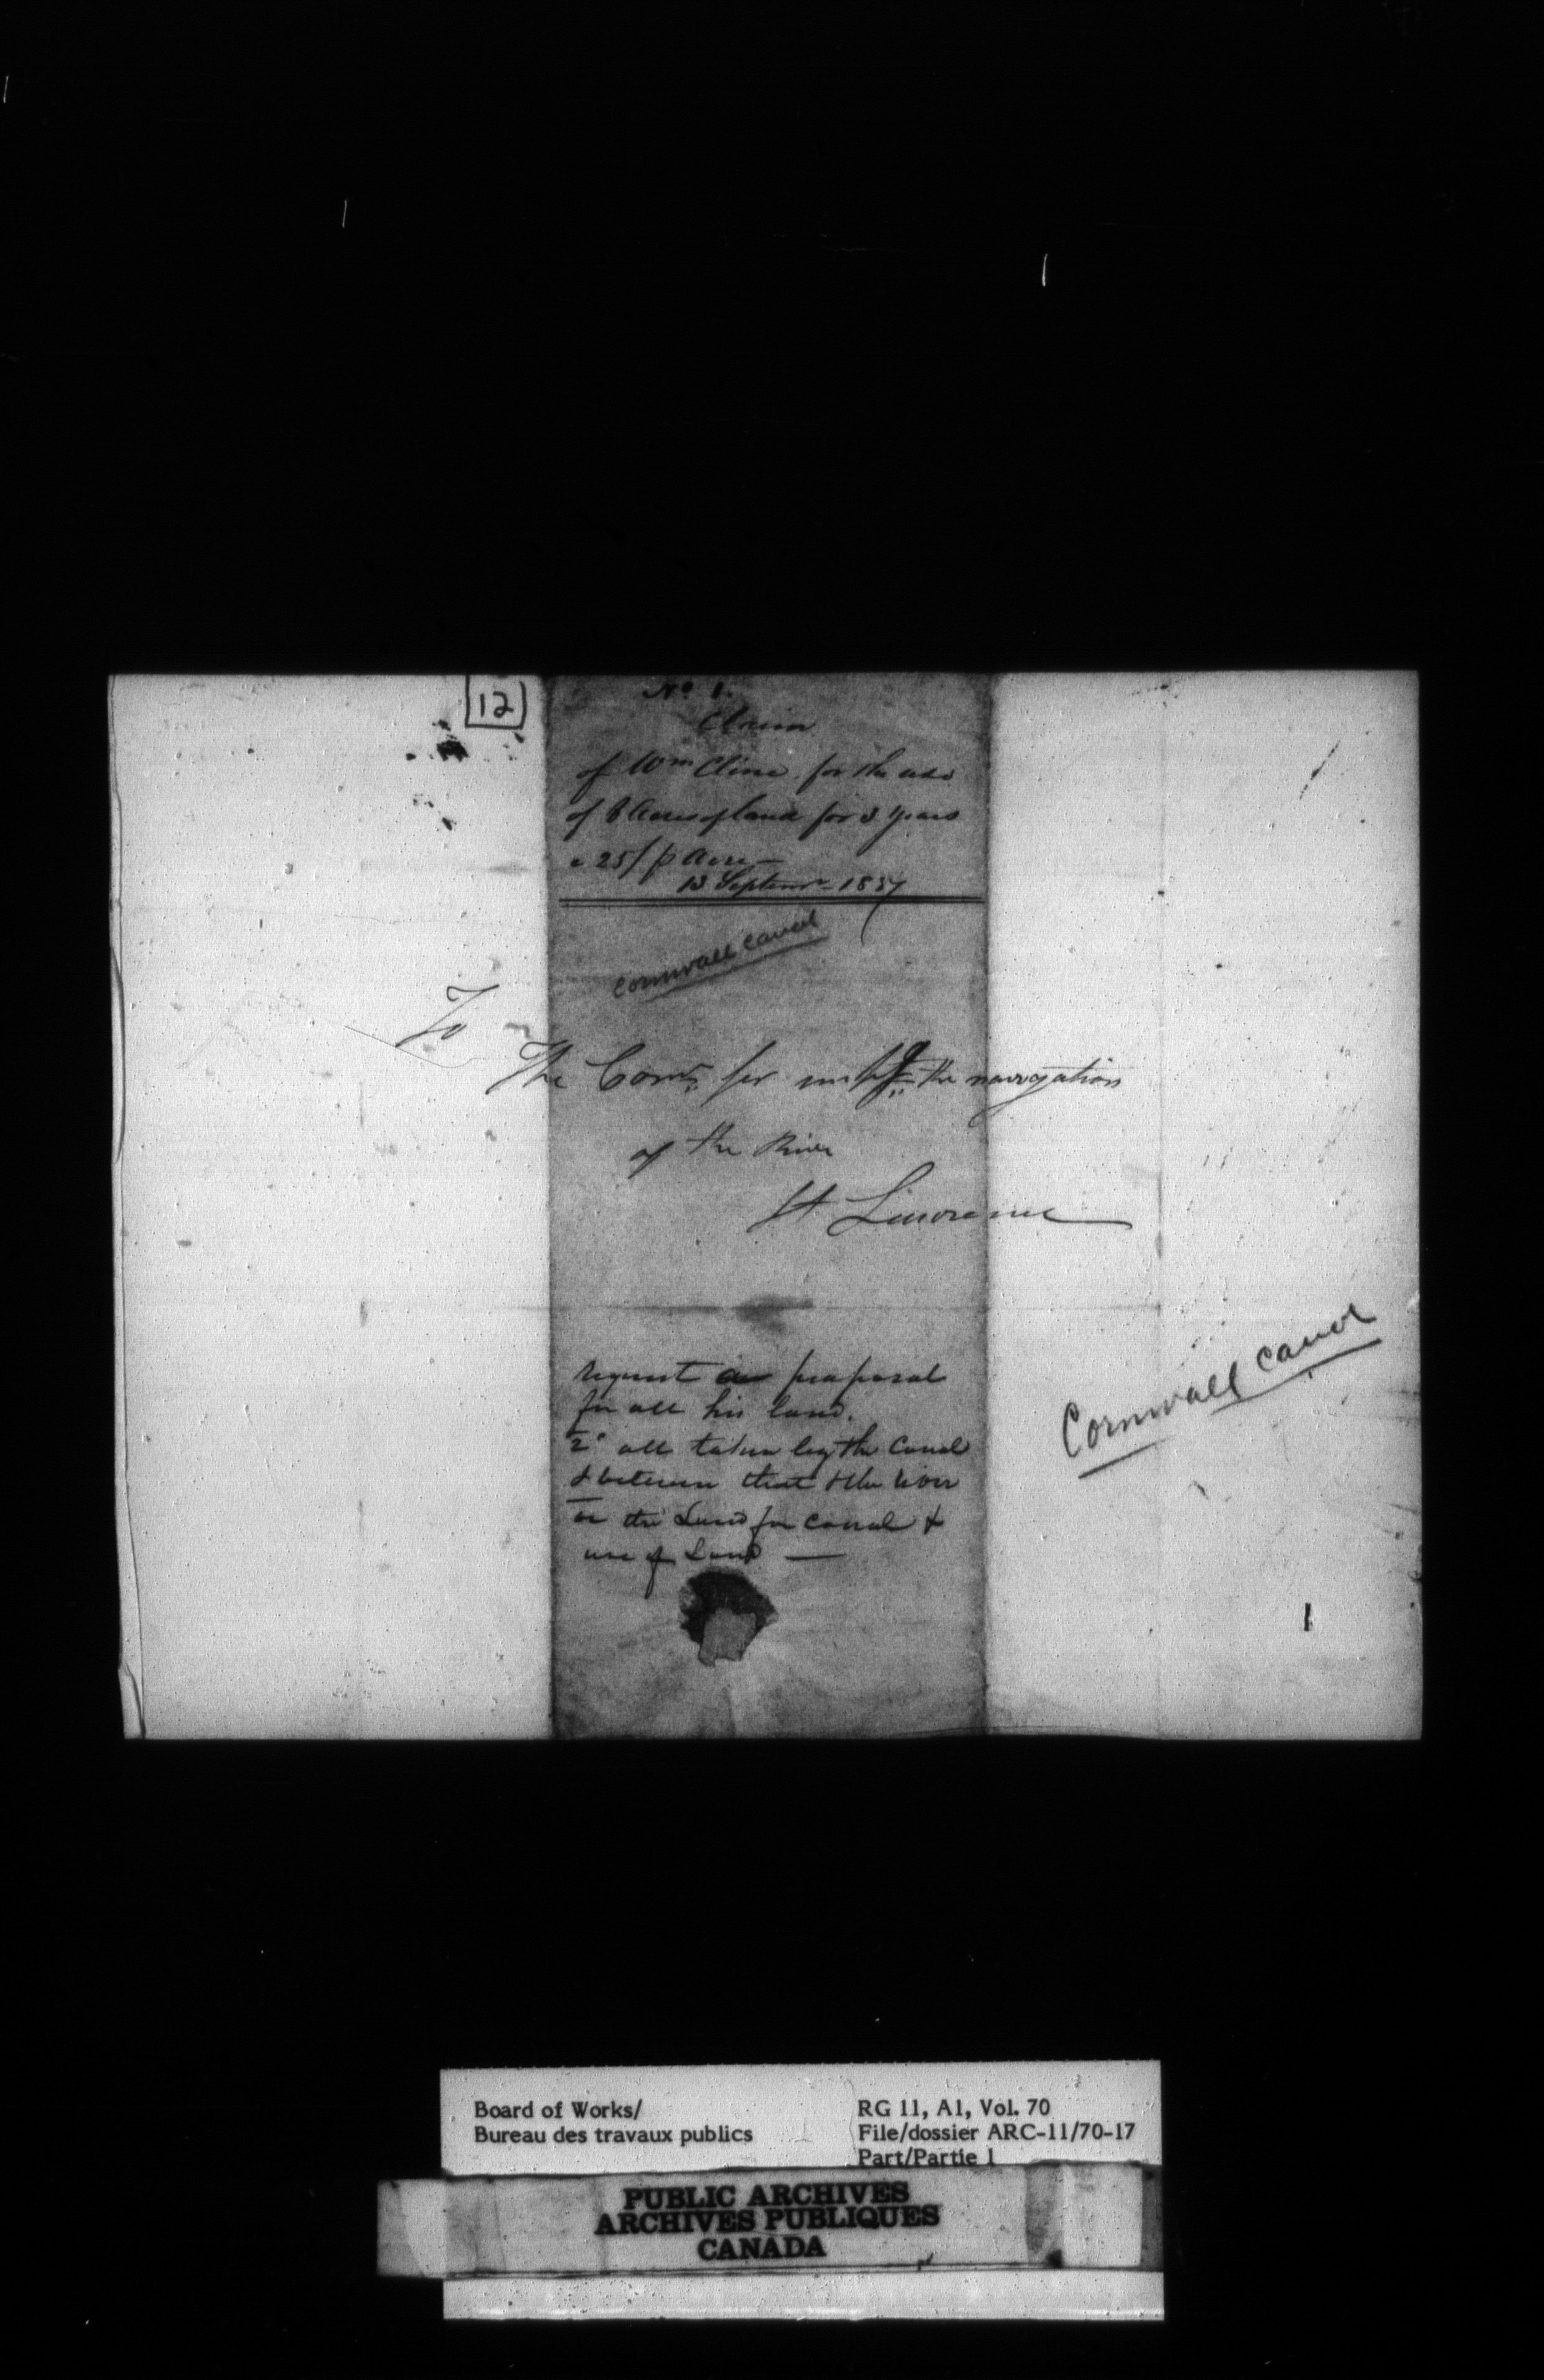 12
No 1.
Claim
of Wm Cline for the use
of 8 Acres of land for 3 years
a 25/ p Acre
13 Septemr 1837
Cornwall Canal
To
The Comrs for the navigation
of the River
St Lawrence
request a proposal
for all his land.
2° all taken by the Canal
& between that & the River
or the Land for Canal &
use of Land
Cornwall Canal
1
Board of Works/
Bureau des travaux publics
RG 11, A1, Vol. 70
File/dossier ARC-11/70-17
Part/Partie 1
PUBLIC ARCHIVES
ARCHIVES PUBLIQUES
CANADA